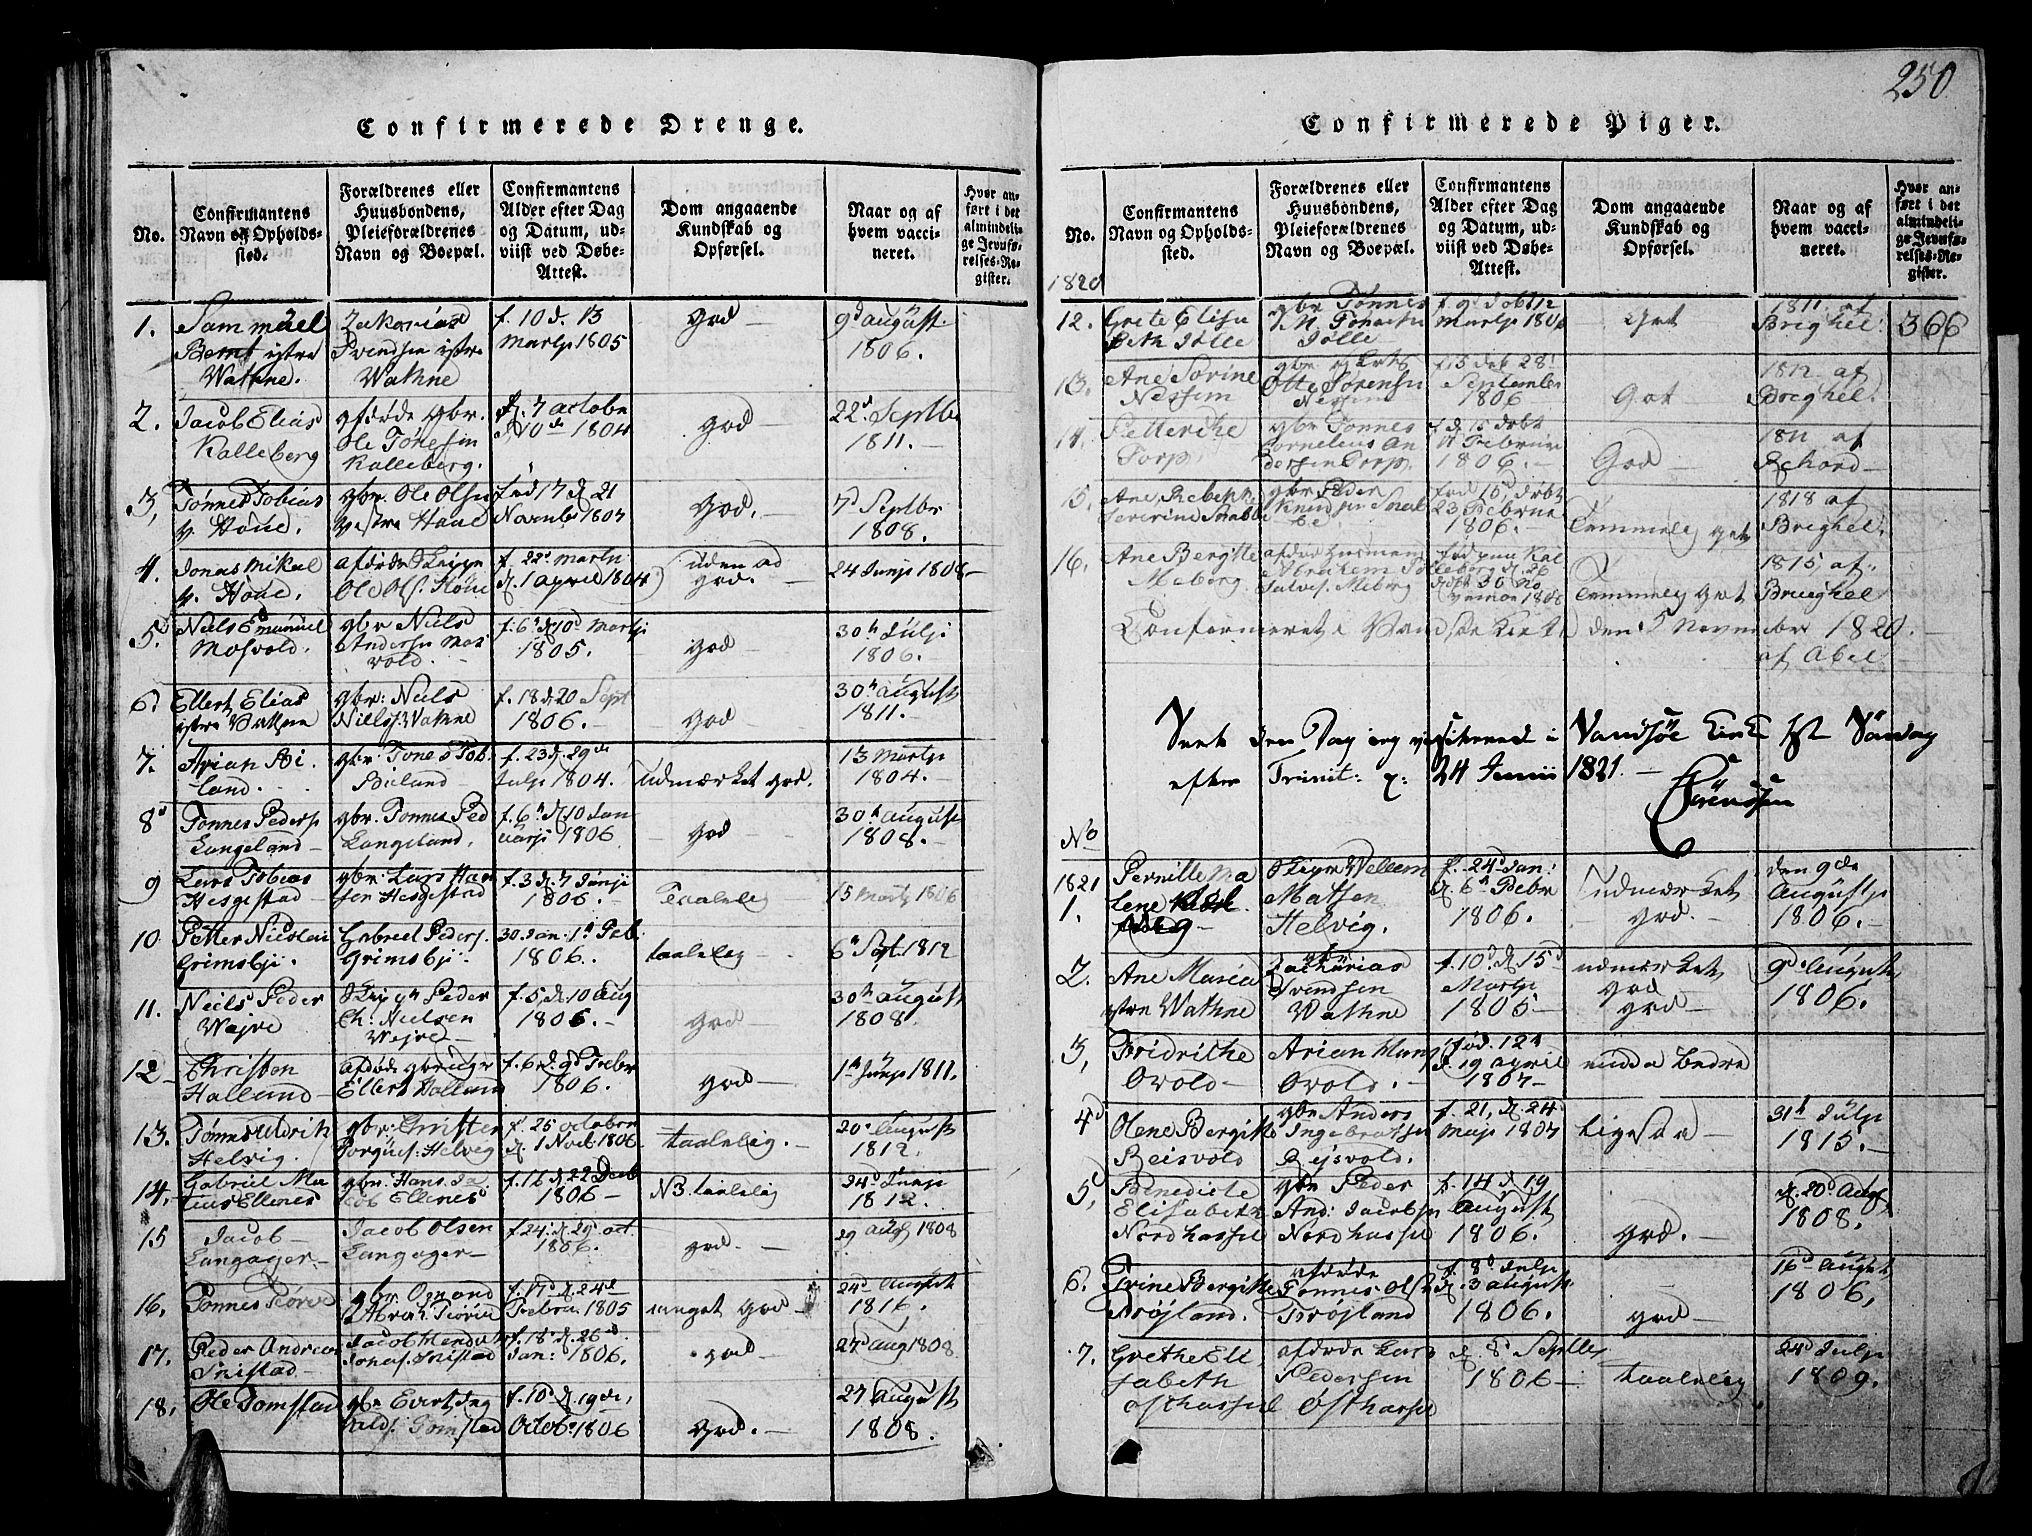 250
Confirmerede Drenge.
No.
Confirmantens
Navn og Opholds-
sted.
Forældrenes eller
Huusbondens,
Pleieforældrenes
Navn og Boepæl.
Confirmantens
Alder efter Dag
og Datum, ud-
viist ved Døbe-
Attest.
Dom angaaende
Kundskab og
Opførsel.
Naar og af
hvem vacci-
neret.
Hvor an-
ført i det
almindeli-
ge Jevnfø-
relses-Re-
gister.
1.
Sammüel
Bernt ystre
Wathne.
Zakarias
Svendsen ystre
Wathne
f. 10 d. 13
Martj 1805
god
9d august
1806.
2.
Jacob Elias
Kalleberg
afdøde gbr.
Ole Tønesen
Kalleberg.
f. 7 octobr
d. 10de 1804
god
22d Septbr
1811.
3,
Tønnes Tobias
v. Høue.
gbr. Ole Olsen
vestre Haae
fød 17 d. 21
Novembr 1804
god.
7d Septbr
1808.
4.
Jonas Mikal
v. Høue.
afdøde
Ole Ols. Høue
f. 22d Martii
d. 1 april 1804
uden ad
god.
24 Junji 1808
5d
Niels Emanuel
Mosvold.
gbr Niels
Andersen Mos
vold.
f. 6d d. 10d Martji
1805.
god
30te Julji
1806.
6d
Ellert Elias
ystre Wathne
gbr: Niels
Niels. Wathne
f. 18 d. 20 Sept
1806.
god
30te august
1811.
7.
Arian Bi-
land.
gbr. Tønes Tob.
Bieland
f. 23 d. 29de
Julji 1804.
udmærket god.
13 Martji
1804.
8d
Tønnes Peders.
Langeland
gbr. Tønnes Ped
Langeland.
f. 6te d. 10 Jan
uarji 1806
god
30te august
1808.
9
Lars Tobias
Hesgestad
gbr. Lars Han
sen Hesgestad
f. 3 d. 7 Junji
1806.
Taalelig
15 Martji 1806
10
Petter Nicolai
Grimsbji.
Gabriel Peders.
Grimsbji.
30 Jan. 1te Feb.
1806.
taalelig
6te Spt. 1812
11.
Neils Peder
Wejre
Peder
Ch: Nielsen
Wejre
f. 5. d. 10 Aug
1806.
god
30te august
1808.
12
Christen
Halland
afdøde gbruger
Ellert Halland
f. 6 d. 9d Febr
1806.
god
1te Junji 1811.
13.
Tønnes Uldrik
Helvig.
gbr. Christen
Torgües. Helvig
f. 25 octobre
d. 1 Novb. 1806
taalelig.
20de August
1812.
14,
Gabriel Ma
tius Ellenes
gbr. Hans Ja
cob Ellenes
f. 16 d. 22 Decb
1806
NB. taalelig
24d Junji
1812
15
Jacob
Langager
Jacob Olsen
Langager
f. 24. d. 29. oct.
1806.
god.
29 Aug 1808
16.
Tønnes
gbr. Osmond
f. 17d d. 24de
Febru. 1805
meget god
24d August
1816.
17.
Peder Andreas
Snistad
Jacob
Jonas. Snistad
f. 18d d. 26d
Jan: 1806.
god
27d Aug 1808
18,
Ole Tomstad
gbr. Evert Ing
valds. Tomstad
f. 10d d. 19de
Octob. 1806
god.
27 August
1808.
Confirmerede Piger.
No.
Confirmantens
Navn og Opholds-
sted.
Forældrenes eller
Huusbondens,
Pleieforældrenes
Navn og Boepæl.
Confirmantens
Alder efter Dag
og Datum, ud-
viist ved Døbe-
Attest.
Dom angaaende
Kundskab og
Opførsel.
Naar og af
hvem vacci-
neret.
Hvor an-
ført i det
almindeli-
ge Jevnfø-
relses-Re-
gister.
1820
12.
Grete Elisa
beth Jølle
gbr Tønnes
Jølle
f. 9 døbt 12
Martji 1806
Got
1811 af
Brighel.
366
13.
Ane Sovine
Nessem
Otte Sørensen
Nessem
f 15 døb 28d
September
1806
Got
1812 af
Breghel.
14
Petteriche
Torp
gbr Tønnes
Cornelius An
dersen Torp.
f d. 15 døbt
Februar
1806.
God
1811 af
15.
Ane
Severine
gbr Peder
Knudsen
fød 15, døbt
23 Februa
1806.
Temmelig got
1818 af
Brighel.
16,
Ane Bergitte
Meberg.
afdøde Husmand
Abraham
Salves. Meberg
1806
Temmelig Got
1815, af
Brughel
Confermeret i Vandse Kirke den 5 Novem
ber 1820.
af Abel
Seet den Dag jeg visiterede i Vandsøe Kirke 1ste Søndag
efter Trinit: d: 24 Junii 1821.
Sørenssen
No
1821
1.
Pernille Ma
lene
Vellem
Matsen
Helvig.
f. 24d Jan:
d. 6te Febr
1806.
udmærket
god.
den 9de
Augustji
1806.
2.
Ane Maria
ystre Wathne
gbr
Zacharias
Svendsen
Wathne
f. 10d d. 15d
Martji
1805
udmærket
god
god
9d August
1806.
3,
Fridriche
Ovold
Arian
Ovold.
fød. 12te
d. 19 april
1807
endda bedre
4d
Olene Bergitte
Reisvold
gbr Anders
Ingebretsen
Rejsvold.
f. 21, d. 24
Maji 1807
Ligesaa
31te Julji
1815.
5,
Benedicte
Elisabeth
Nordhassel
gbr Peder
And: Jacobsen
Nordhassel
f. 14 d 19
August
1806.
god.
d. 20d Aug
1808.
6.
Trine Bergitte
Trøjland.
afdøde
Tønnes Olsen
Trøjland
f. 8d Julji
d. 3 august
1806.
god
16d August
1806,
7.
Grethe Eli
sabeth
østhassel
afdøde Lars
Pedersen
Østhassel
d. 8d Septbr
1806
taalelig
24d Julji
1809.